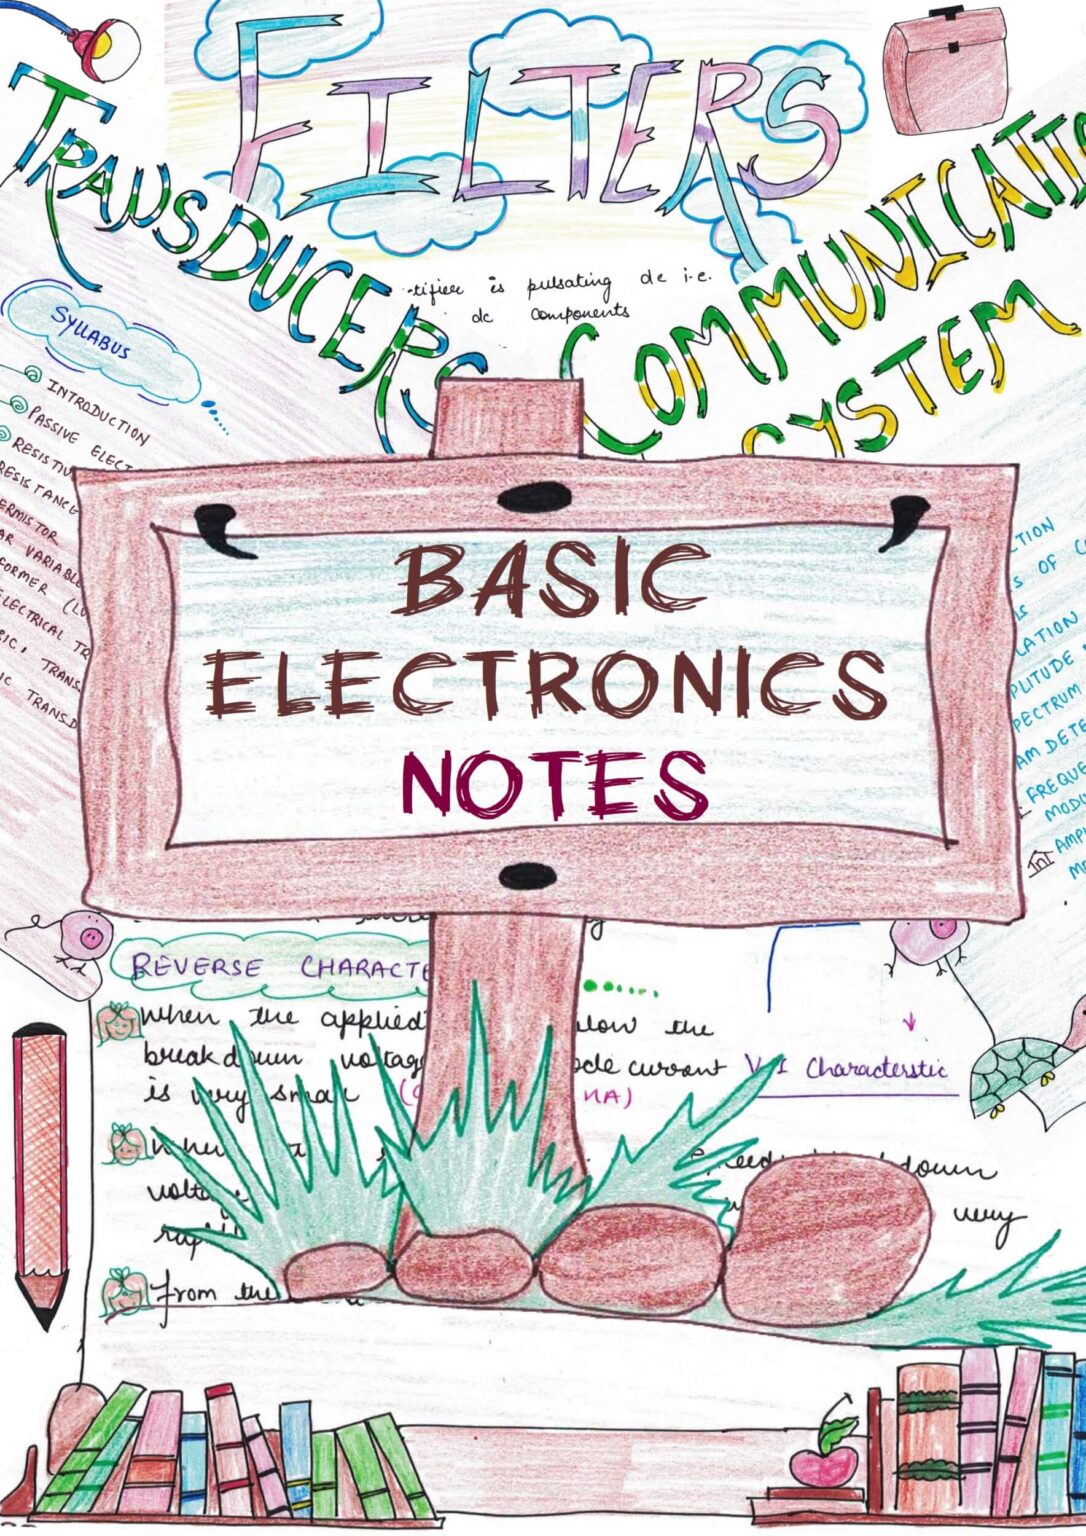 FILTERS
TRANSDUCERS
COMMUNICATIO
SYSTEM
tifier is pulsating dc i.e.
dc components
SYLLABUS
INTRODUCTION
PASSIVE ELECT
RESISTIV
RESISTANCE
ERMISTOR
AR VARIABLE
FORMER (LV
ELECTRICAL TR
RIC, TRANS
IC TRANSD
CTION
S OF CO
LATION
PLITUDE
PECTRUM
AM DETE
FREQUE
MODU
AMPL
BASIC
ELECTRONICS
NOTES
REVERSE CHARACTE
When the applied low the
breakdown voltag ode current
is very small NA)
V-I Characterstic
down
voltage very
rap
From the